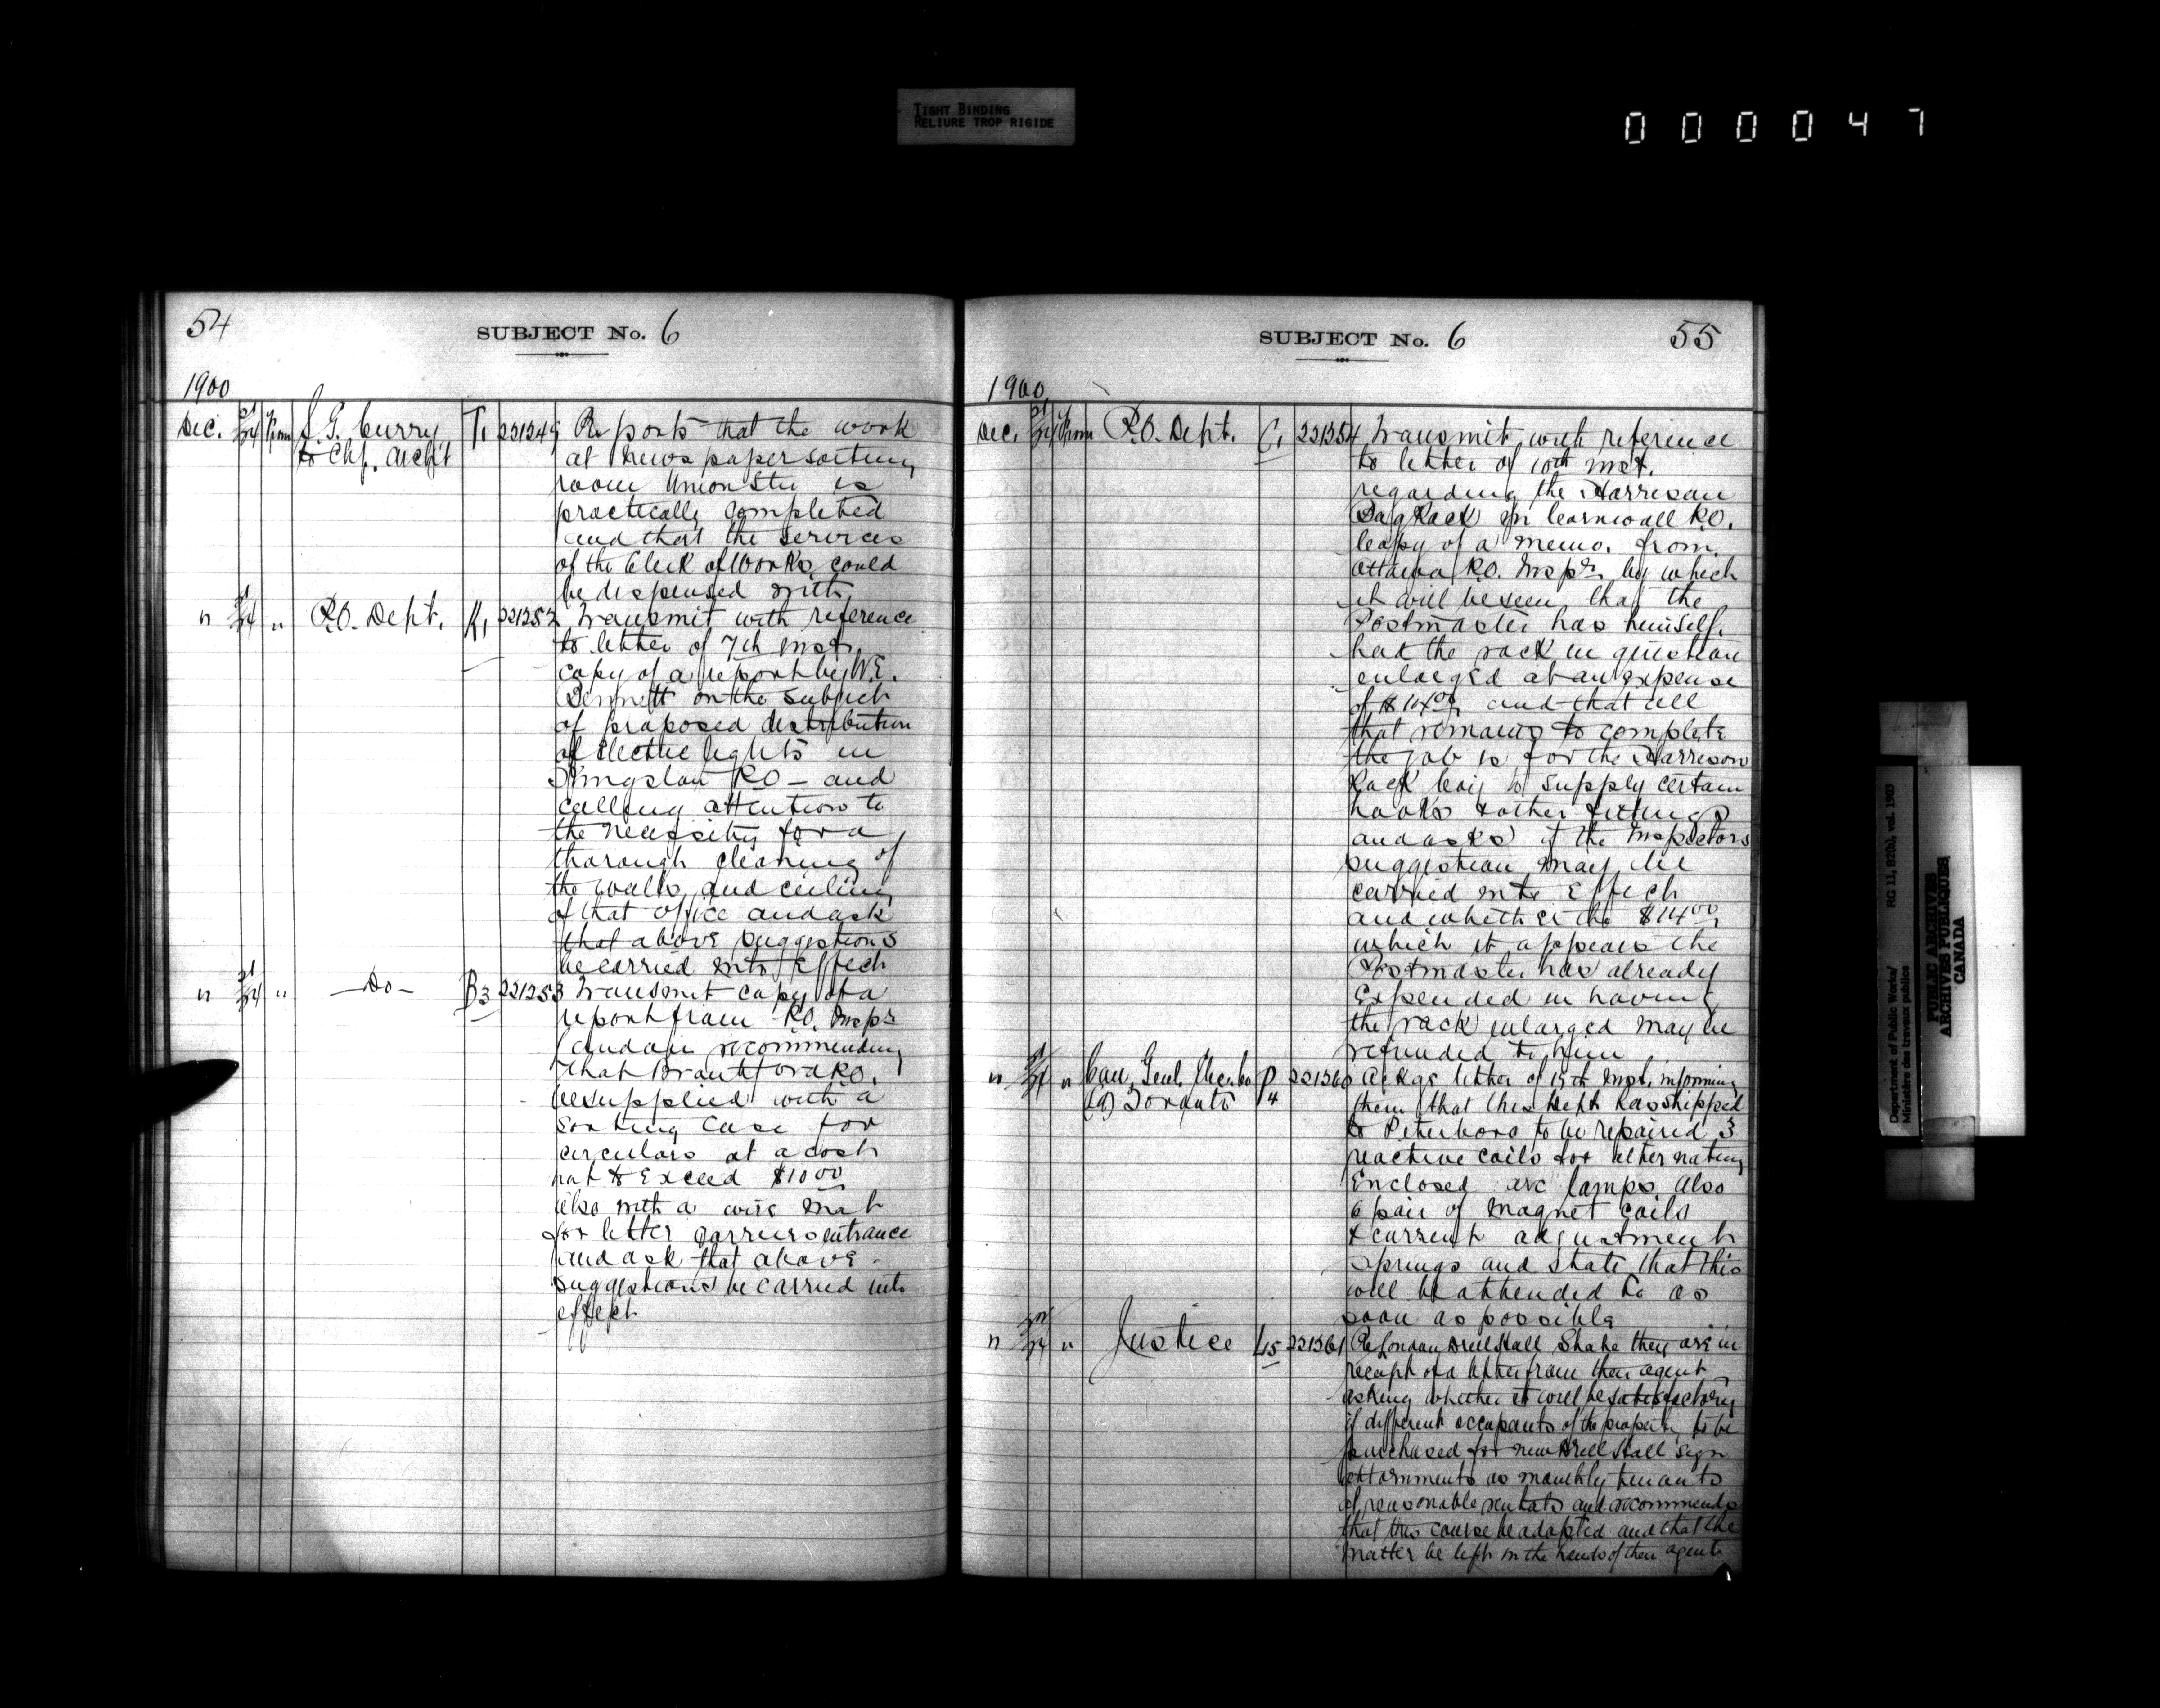 TIGHT BINDING
RELIURE TROP RIGIDE
000047
54
SUBJECT No. 6
1900
Dec. 21/24 from J. G. Curry T1 221249 Reports that the work
to Chf. Archt at newspaper sorting
room Union Stn is
practically completed
and that the services
of the Clerk of Works could
be dispensed with
" 21/24 " P.O. Dept. K1 221252 Transmit with reference
to letter of 7th inst.
copy of a report by W.E.
Bennett on the subject
of proposed distribution
of Electric lights in
Kingston P.O — and
calling attention to
the necessity for a
thorough cleaning of
the walls and ceiling
of that office and ask
that above suggestions
be carried into Effect
" 21/24 " — Do — B3 221253 Transmit copy of a
report from P.O. Inspr
London recommending
that Brantford P.O.
be supplied with a
Sorting Case for
circulars at a cost
not to Exceed $10 00
also with a wire mat
for letter carriers entrance
and ask that above
suggestions be carried into
effect
SUBJECT No. 6
55
1900
Dec. 21/24 from P.O. Dept. C1 221254 Transmit with reference
to letter of 10th inst.
regarding the Harrison
Bag Rack in Cornwall P.O.
Copy of a memo. from
Ottawa P.O. Inspr. by which
it will be seen that the
Postmaster has himself
had the rack in question
enlarged at an expense
of $14 00 and that all
that remains to complete
the job is for the Harrison
Rack Coy to supply certain
hooks & other fittings
and asks if the Inspectors
suggestion may be
carried into Effect
and whether the $14 00
which it appears the
Postmaster has already
Expended in having
the rack enlarged may be
refunded to him
" " Can. Genl. Elec. Co P4 221260 Ackge letter of 19th inst. informing
Toronto them that this Dept has shipped
to Peterboro to be repaired 3
reactive coils for alternating
Enclosed arc lamps also
6 pair of magnet coils
& current adjustment
springs and state that this
will be attended to as
soon as possible
" " Justice L5 221261 Re London Drill Hall State they are in
receipt of a letter from their agent
asking whether it will be satisfactory
if different occupants of the property to be
purchased for new Drill Hall sign
attornments as monthly tenants
at reasonable rentals and recommends
that this course be adopted and that the
matter be left in the hands of their agent
Department of Public Works/
Ministère des travaux publics
RG 11, B2(b), vol. 1903
PUBLIC ARCHIVES
ARCHIVES PUBLIQUES
CANADA